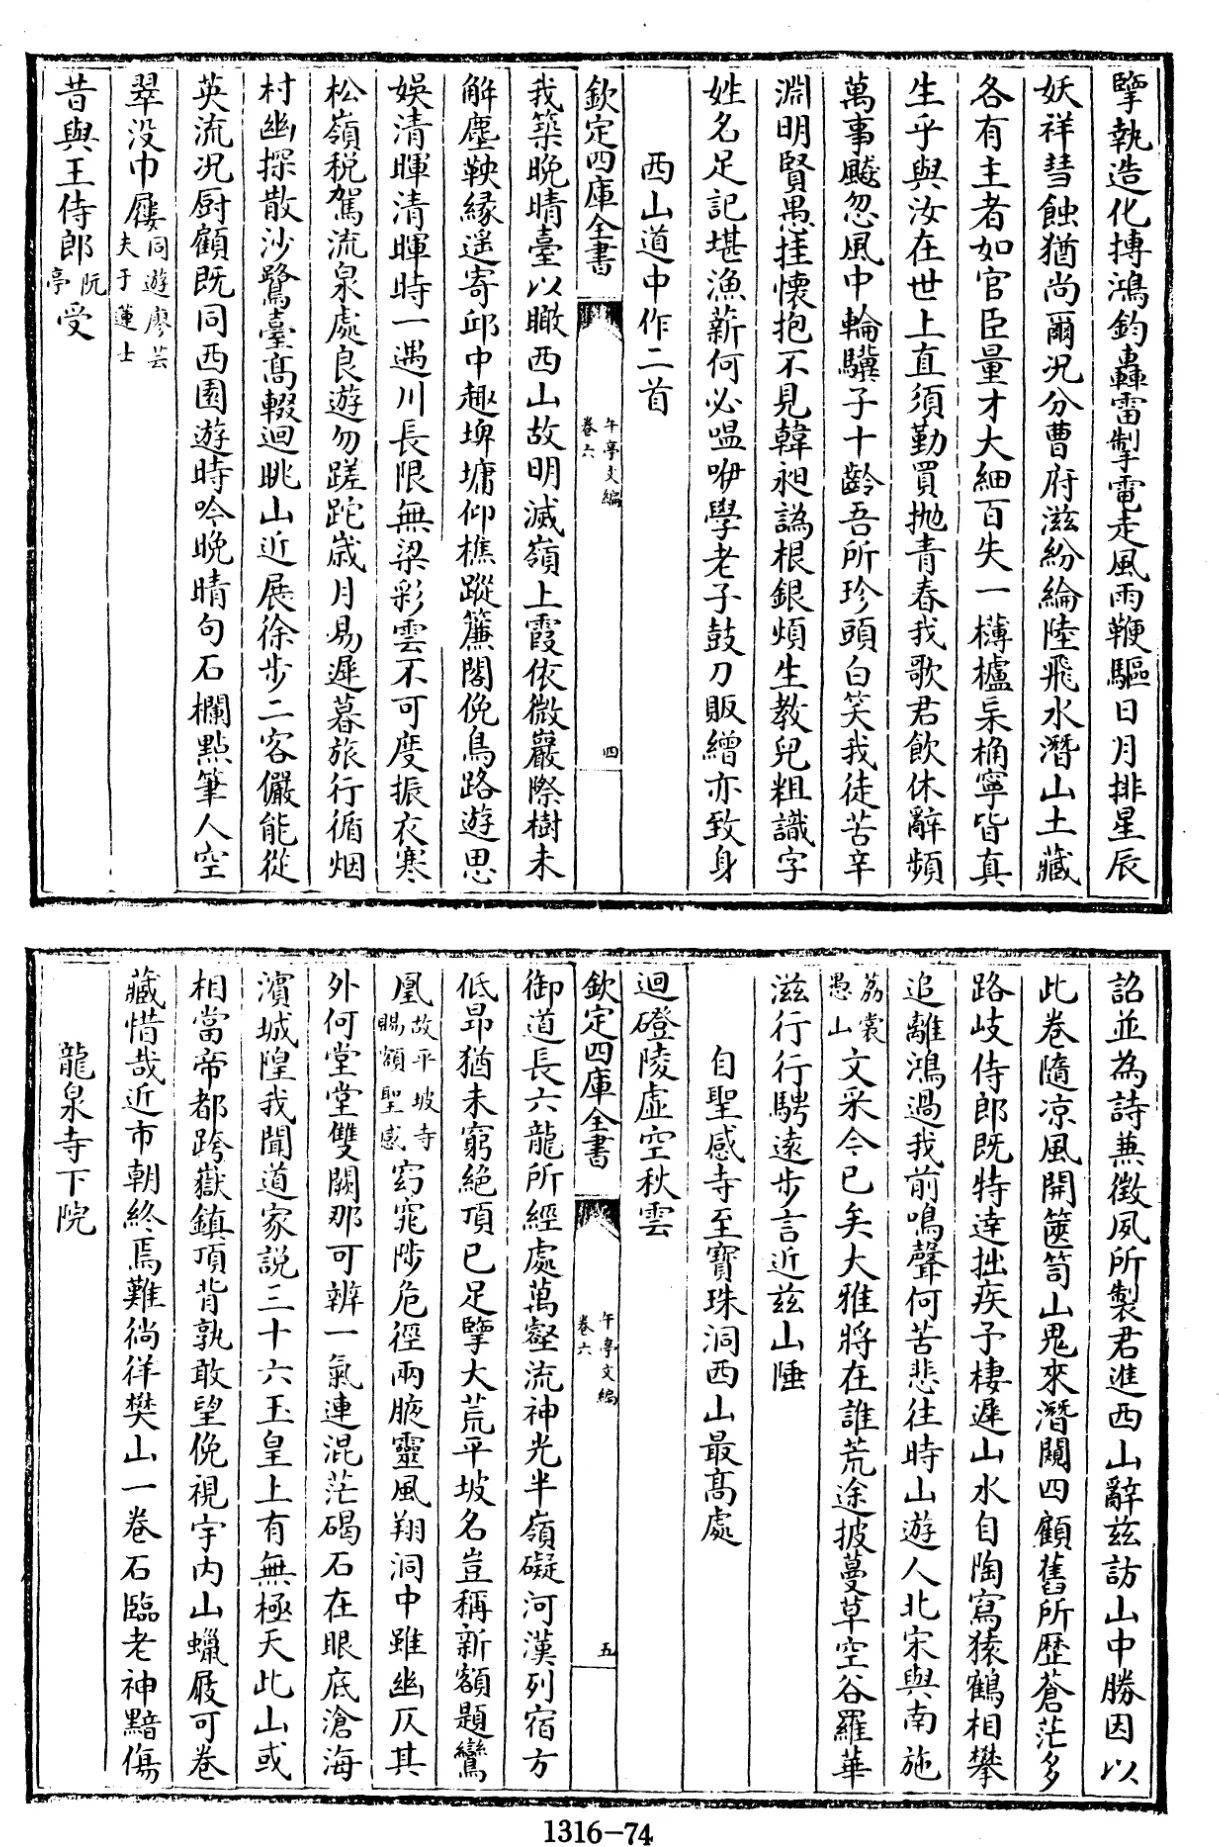 擥執造化摶鴻鈞轟雷掣電走風雨鞭驅日月排星辰
妖祥彗蝕猶尚爾況分曹府滋紛綸陸飛水潛山土藏
各有主者如官臣量才大細百失一欂櫨杗桷寜皆真
生乎與汝在世上直須勤買拋青春我歌君飲休辭頻
萬事飈忽風中輪驥子十齡吾所珍頭白笑我徒苦辛
淵明賢愚挂懷抱不見韓昶譌根銀煩生教兒粗識字
姓名足記堪漁薪何必嗢咿學老子鼓刀販繒亦致身
西山道中作二首
欽定四庫全書
午亭文編
卷六
四
我築晚晴臺以瞰西山故明滅嶺上霞依微巖際樹未
解塵鞅緣遥寄邱中趣埤墉仰樵蹤簾閣俛鳥路遊思
娛清暉清暉時一遇川長限無梁彩雲不可度振衣寒
松嶺税駕流泉處良遊勿蹉跎嵗月易遲暮旅行循烟
村幽探散沙鷺臺髙輟迴眺山近展徐步二客儼能從
英流況厨顧既同西園遊時吟晚晴句石欄點筆人空
翠没巾屨同遊廖芸夫于蓮士
昔與王侍郎阮亭受
詔並為詩蕪徴夙所製君進西山辭兹訪山中勝因以
此卷隨凉風開篋笥山鬼來潛闚四顧舊所歴蒼茫多
路岐侍郎既特達拙疾予棲遲山水自陶寫猿鶴相攀
追離鴻過我前鳴聲何苦悲往時山遊人北宋與南施
荔裳愚山文采今已矣大雅將在誰荒途披蔓草空谷羅華
滋行行騁遠步言近兹山陲
自聖感寺至寶珠洞西山最髙處
迴磴陵虛空秋雲
欽定四庫全書
午亭文編
卷六
五
御道長六龍所經處萬壑流神光半嶺礙河漢列宿方
低昻猶未窮絶頂已足擥大荒平坡名豈稱新額題鸞
凰故平坡寺賜額聖感窈窕陟危徑兩腋靈風翔洞中雖幽仄其
外何堂堂雙闕那可辨一氣連混茫碣石在眼底滄海
濱城隍我聞道家説三十六玉皇上有無極天此山或
相當帝都跨嶽鎮頂背孰敢望俛視宇内山蠟屐可卷
藏惜哉近市朝終焉難徜徉樊山一卷石臨老神黯傷
龍泉寺下院
1316-74